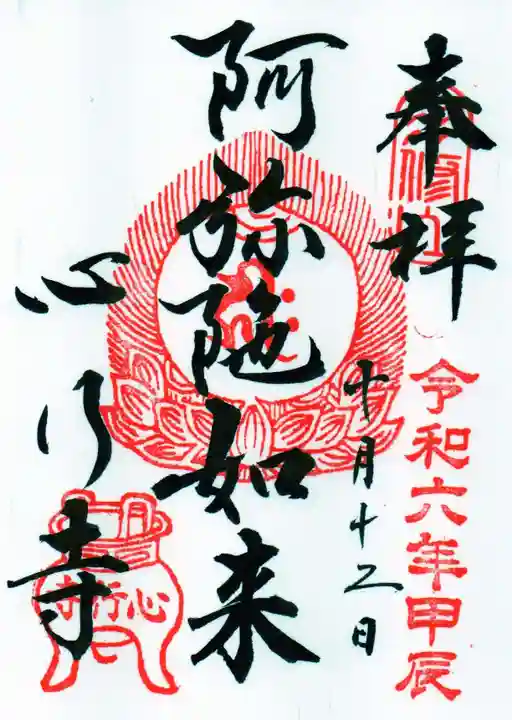 奉拝
令和六年甲辰
十月十二日
阿弥陀如来
心行寺
心行寺